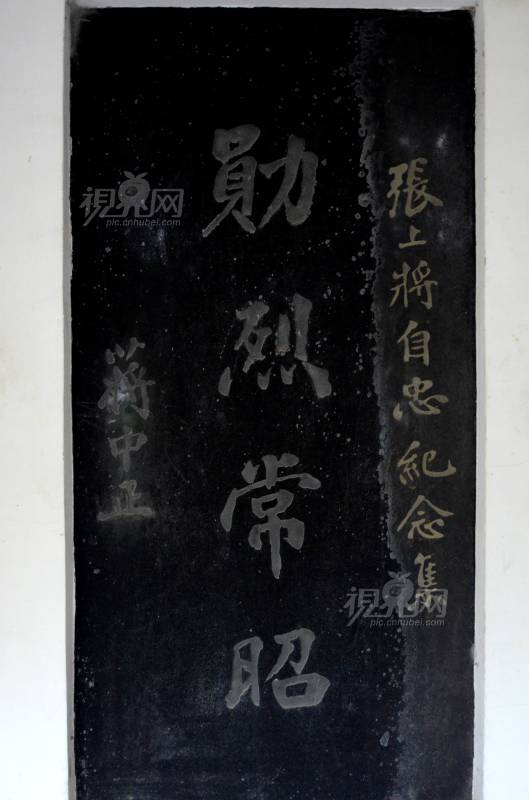 張上將自忠紀念集
勛烈常昭
蔣中正
視界网
pic.cnhubei.com
視界网
pic.cnhubei.com